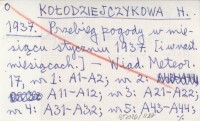 KOŁODZIEJCZYKOWA H.
1937. Przebieg pogody w mie-
siącu styczniu 1937. [i wnast.
miesiącach.] — Wiad. Meteor.
17, nr 1: A1-A2; nr 2:
A11-A12; nr 3: A21-A22;
nr 4: A31-A32; nr 5: A43-A44.